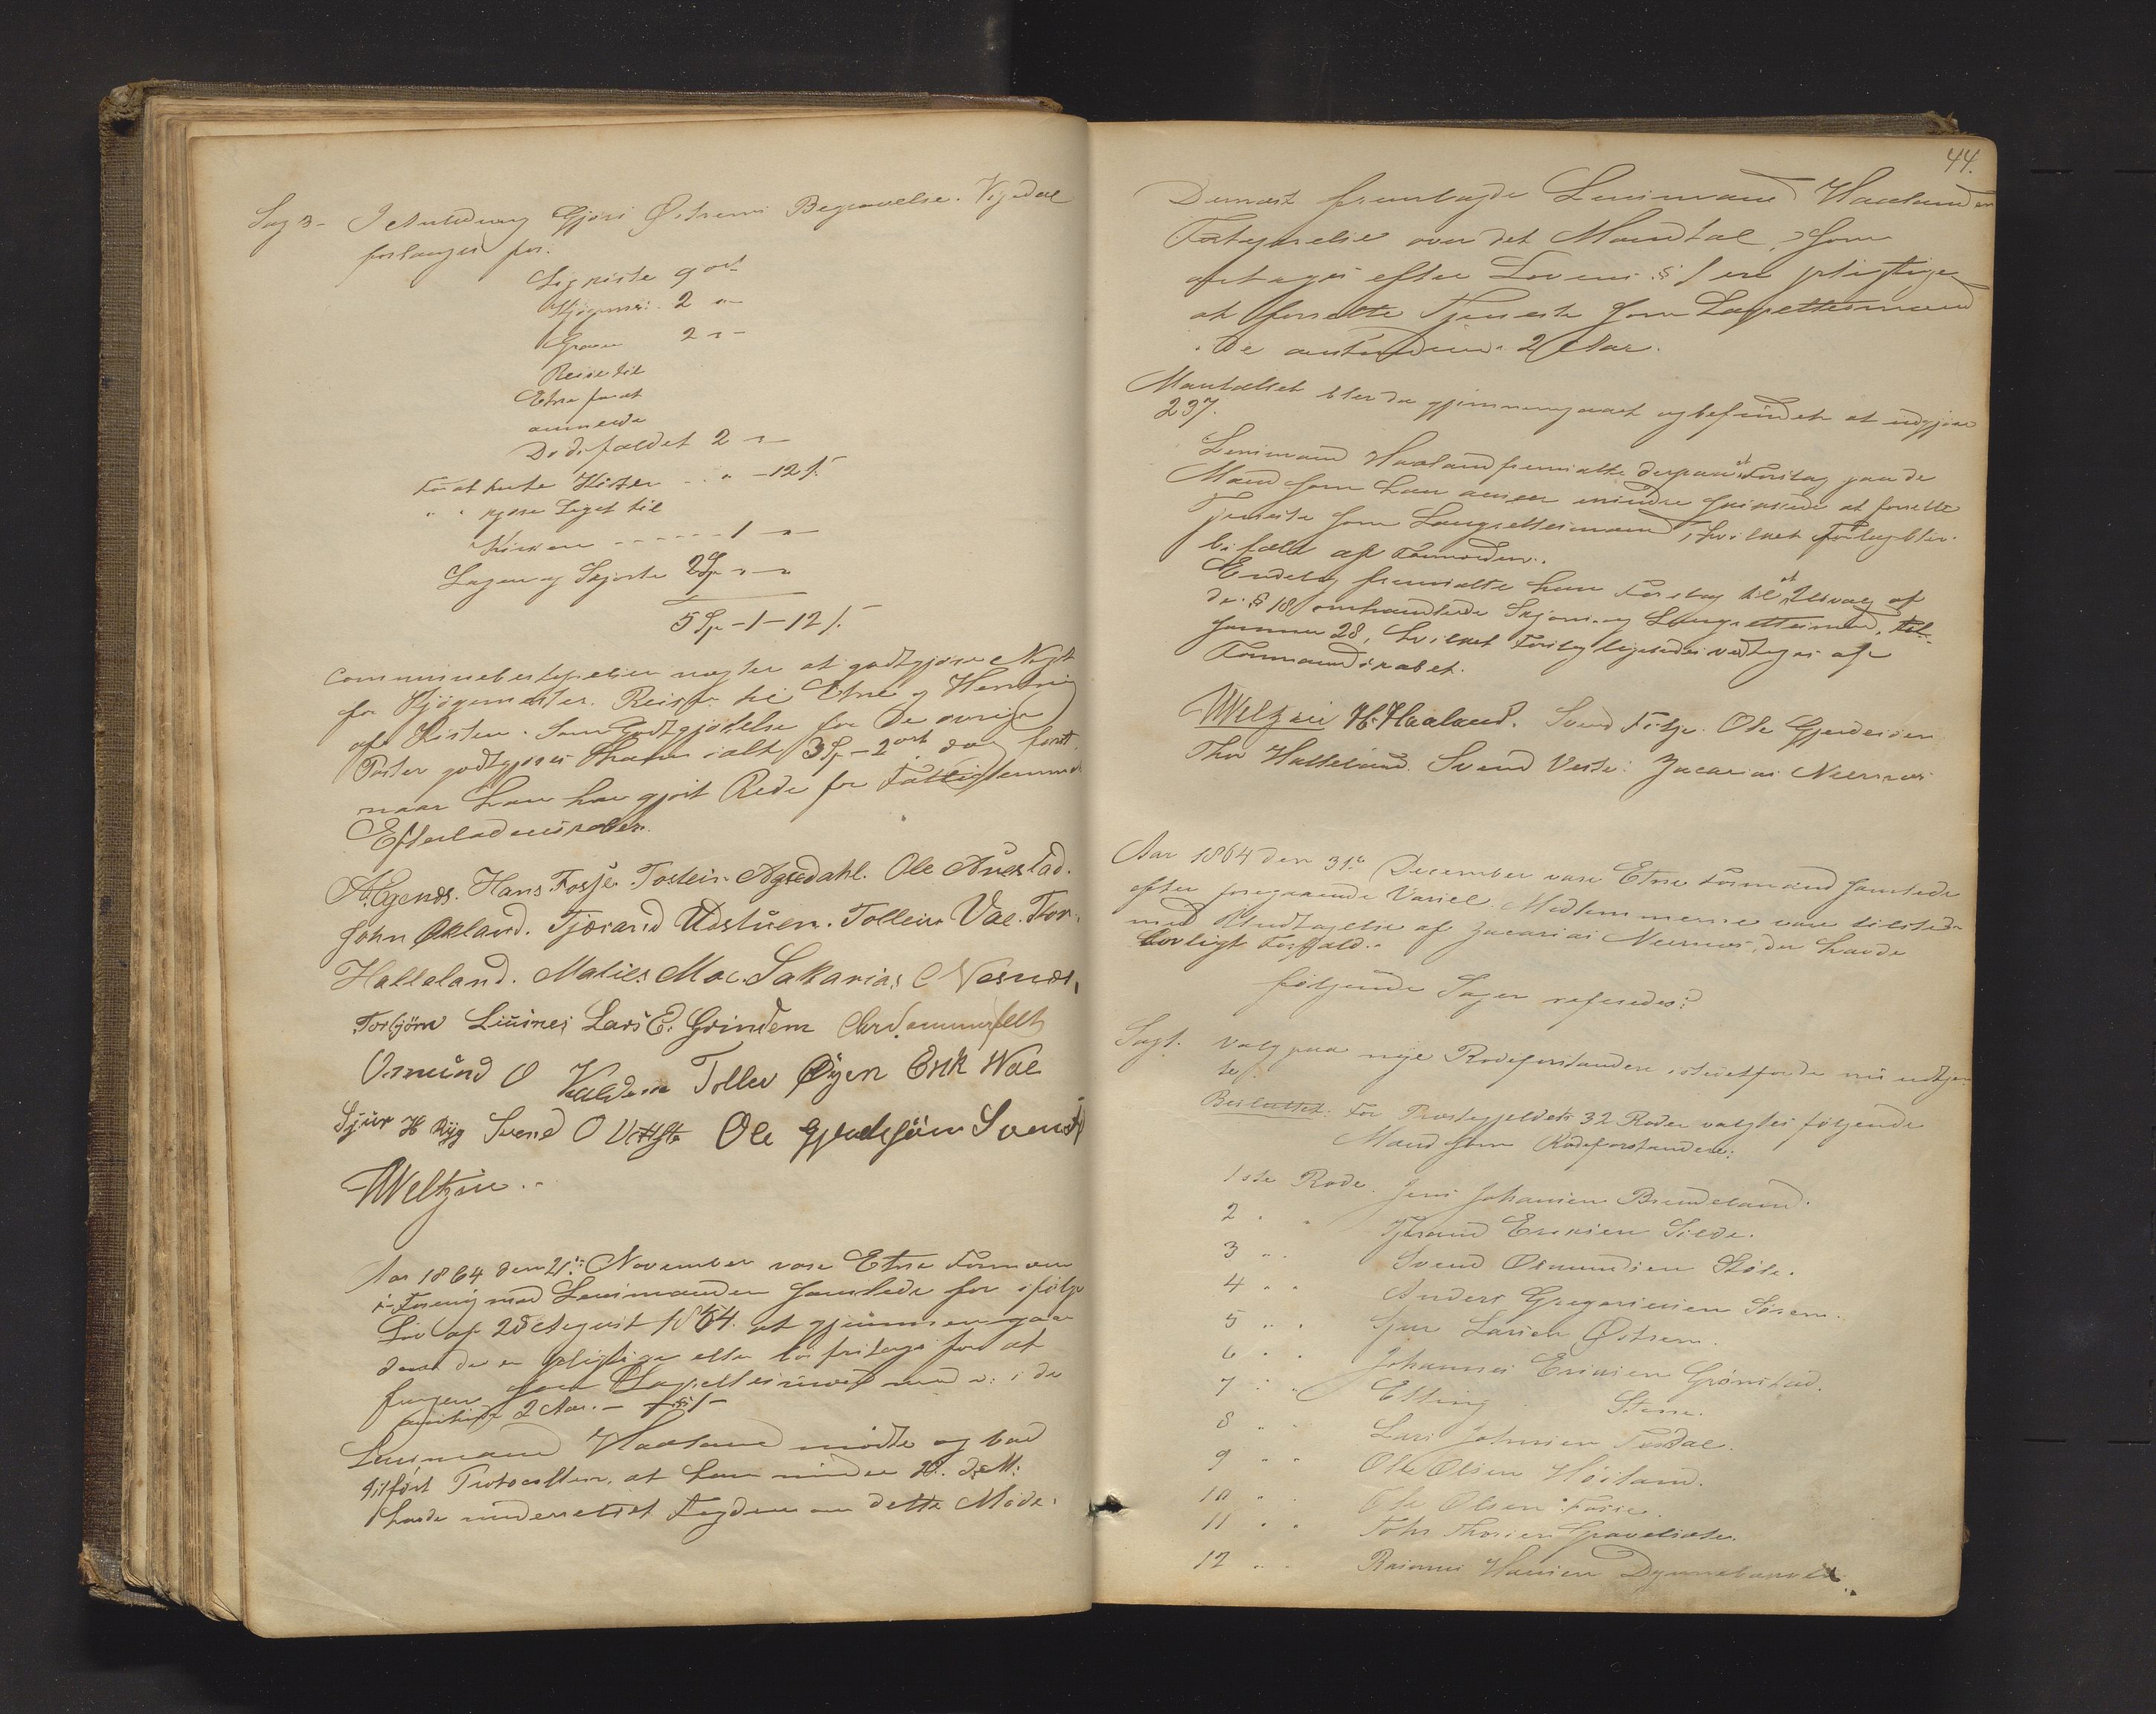 Sag 3 - I Anledning Gjøri Østrems Begravelse. Vigedal
forlanges for.
Ligkiste 9 ort
Kjøgemes: 2 " -
Graven 2 " -
Reise til
Etne for at
anmelde
Dødsfaldet 2 " -
For at hente Kisten - " - 12 s.
" " kjøre Liget til
Kirken - - - - - - 1 - " -
Lagen og Skjorte 2 Sp " - "
5 Sp - 1 - 12 s.
Communebestyrelsen nægter at godtgjøre
for Kjøgemester. Reise til Etne og Hentning
af Kisten. Som Godtgjørelse for de øvrige
Poster godtgjøres ham ialt 3 Sp - 2 ort dog først
naar han har gjort Rede for Fattiglemmets
Efterladenskaber.
A. Egenæs. Hans Fosje. Tostein Agsdahl. Ole Aurstad.
John Økland. Tjerand Udstuen. Tollein Vae. Tor.
Halleland. Maties Moe. Sakarias Nesnæs,
Torbjørn Liusnes Lars E. Grindem
Osmund O Kaldem Tollev Øyen Erik Wae
Sjur H Ryg Svend O Vestbø Ole Gjerdesjøen Svend F
Weltzin.
Aar 1864 den 21de November vare Etne Formæn
i Forening med Lensmanden samlede for ifølge
Lov af 28 August 1854 at gjennemgaa
der er pligtige eller fritages for at
fungere som Lagrettesmænd i de
2 Aar. -
Lensmand Haaland mødte og bad
tilført Protocollen, at han under 20. d. M.
havde underrettet Fogden om dette Møde.
44.
Dernæst fremlagde Lensmand Haaland en
Fortegnelse over det Mandtal, som
antages efter Lovens § 1 ere pligtige
at forrette Tjeneste som Lagrettesmænd
i de 2 Aar.
Mantallet blev da gjennemgaaet og befundet at udgjøre
237.
Lensmand Haaland fremsatte derpaa et Forslag paa de
Mænd som han anseer mindre skikkede at forrette
Tjeneste som Laugrettesmænd, hvilket Forslag blev
bifaldt af Formænden.
Endelig fremsatte han Forslag til et Udvalg af
de i § 18 omhandlede Skjøns og Laugrettesmænd, til
sammen 28, hvilket Forslag ligeledes vedtoges af
Formandskabet.
Weltzin H. Haaland. Svend Fitje. Ole Gjerdesøen
Thor Halleland. Svend Vestbø. Zacarias Nernæs
Aar 1864 den 31te December vare Etne Formænd samlede
efter foregaaende Varsel. Medlemmerne vare tilstede
med Undtagelse af Zacarias Neernæs, der havde
lovligt Forfald.
følgende Sager refereredes:
Sag 1. Valg paa nye Rodeforstandere istedetfor de nu udtjen
te.
Besluttet: For Præstegjeldets 32 Roder valgtes følgende
Mænd som Rodeforstandere:
1ste Rode. Jens Johansen Brendeland.
2 " " Tjerand Eriksen Silde.
3 " " Svend Osmundsen Støle.
4 " " Anders Gregoriusen Sørem.
5 " " Sjur Larsen Østrem.
6 " " Johannes Eriksen Grønstad.
7 " " Elling Stene.
8 " " Lars Johnsen Tesdal.
9 " " Ole Olsen Høiland.
10 " " Ole Olsen Fosse.
11 " " Tohr Thorsen Gravelsæter.
12 " " Rasmus Hansen Dynnebakken.